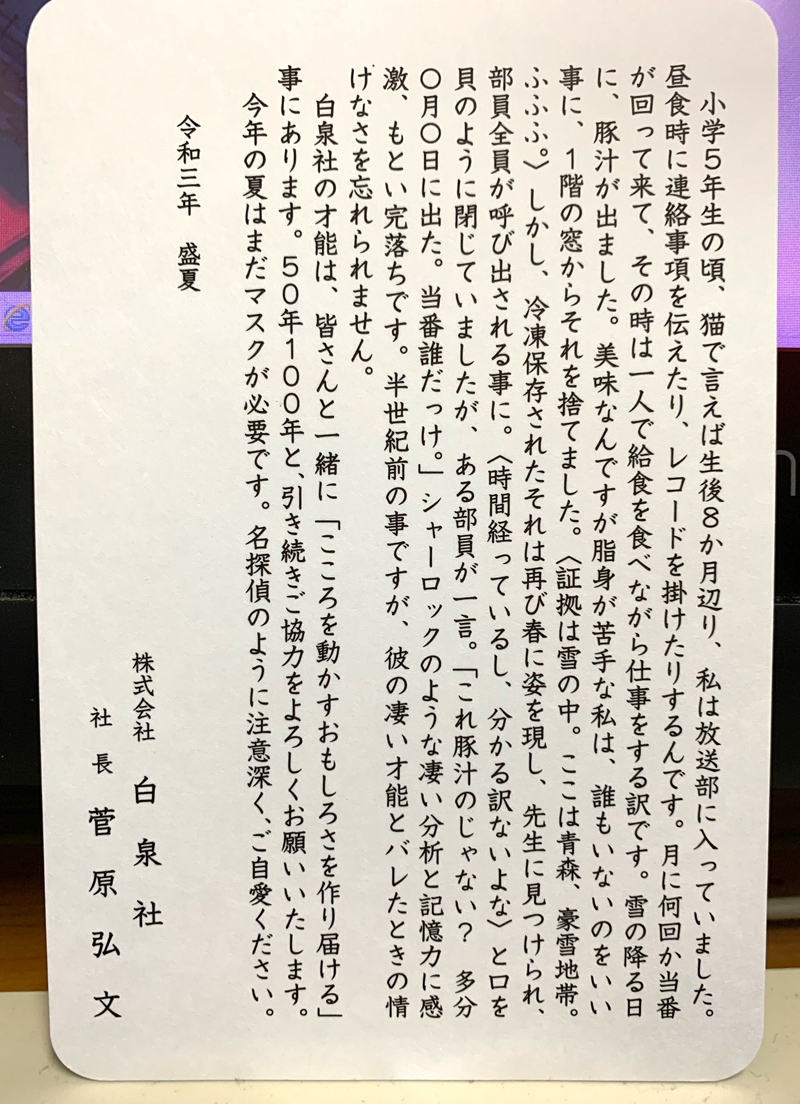 小学5年生の頃、猫で言えば生後8か月辺り、私は放送部に入っていました。
昼食時に連絡事項を伝えたり、レコードを掛けたりするんです。月に何回か当番
が回って来て、その時は一人で給食を食べながら仕事をする訳です。雪の降る日
に、豚汁が出ました。美味なんですが脂身が苦手な私は、誰もいないのをいい
事に、1階の窓からそれを捨てました。〈証拠は雪の中。ここは青森、豪雪地帯。
ふふふ。〉しかし、冷凍保存されたそれは再び春に姿を現し、先生に見つけられ、
部員全員が呼び出される事に。〈時間経っているし、分かる訳ないよな〉と口を
貝のように閉じていましたが、ある部員が一言。「これ豚汁のじゃない？　多分
〇月〇日に出た。当番誰だっけ。」シャーロックのような凄い分析と記憶力に感
激、もとい完落ちです。半世紀前の事ですが、彼の凄い才能とバレたときの情
けなさを忘れられません。
白泉社の才能は、皆さんと一緒に「こころを動かすおもしろさを作り届ける」
事にあります。50年100年と、引き続きご協力をよろしくお願いいたします。
今年の夏はまだマスクが必要です。名探偵のように注意深く、ご自愛ください。
令和三年　盛夏
株式会社　白泉社
社長　菅原弘文